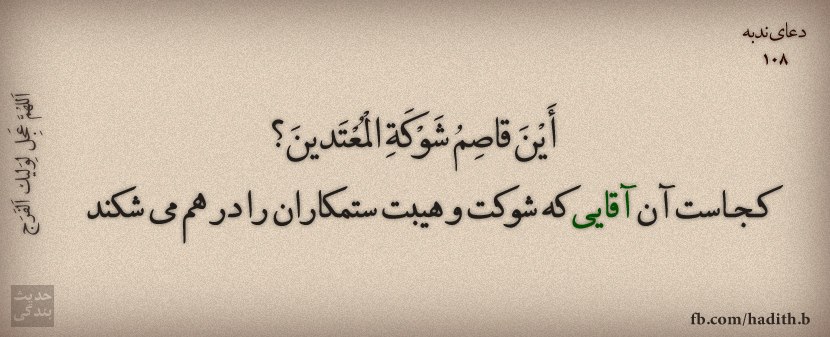 دعای ندبه
۱۰۸
أَیْنَ قاصِمُ شَوْکَةِ الْمُعْتَدینَ؟
کجاست آن آقایی که شوکت و هیبت ستمکاران را در هم می شکند
اَللهُمَّ عَجِّل لِوَلیِّکَ الفَرَج
حدیث
بندگی
fb.com/hadith.b